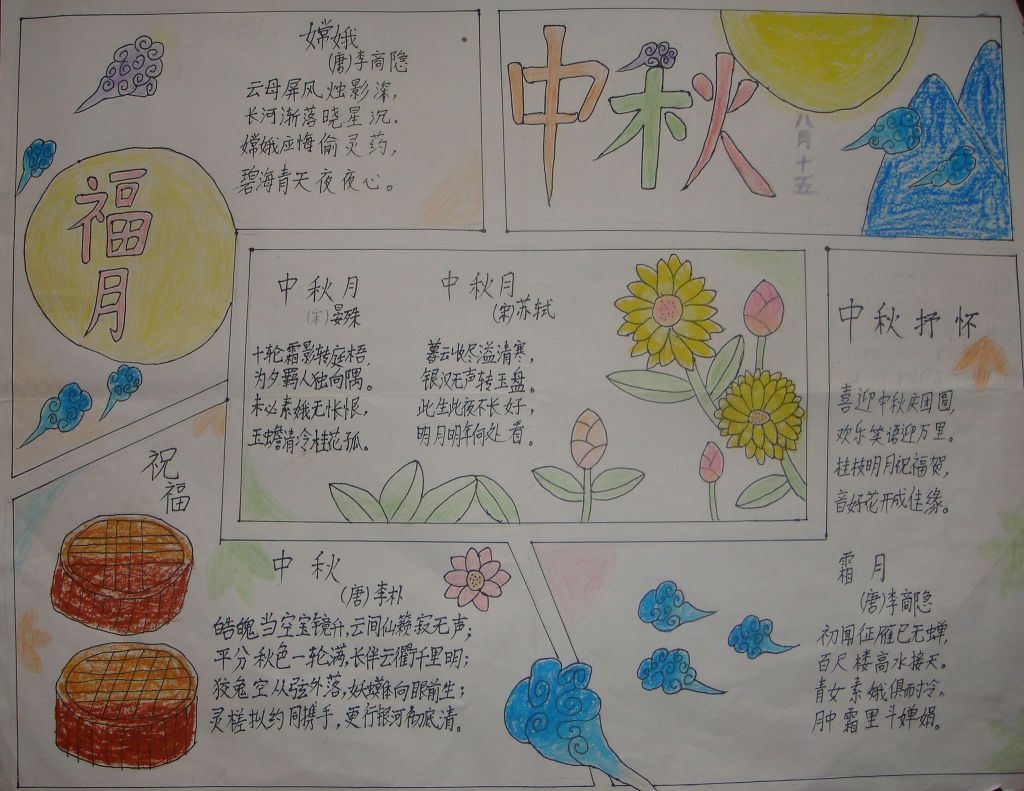 嫦娥
(唐)李商隐
云母屏风烛影深,
长河渐落晓星沉.
嫦娥应悔偷灵药,
碧海青天夜夜心。
中秋
八月十五
福月
中秋月
(宋)晏殊
十轮霜影转庭梧.
为夕羁人独向隅。
未必素娥无怅恨,
玉蟾清冷桂花孤。
中秋月
(宋)苏轼
暮云收尽溢清寒,
银汉无声转玉盘。
此生此夜不长好,
明月明年何处看。
中秋抒怀
喜迎中秋庆团圆,
欢乐笑语迎万里。
桂枝明月祝福贺,
音好花开成佳缘。
祝福
中秋
(唐)李朴
皓魄当空宝镜升,云间仙籁寂无声;
平分秋色一轮满,长伴云衢千里明;
狡兔空从弦外落,妖蟆休向眼前生;
灵槎拟约同携手,更行银河彻底清。
霜月
(唐)李商隐
初闻征雁已无蝉,
百尺楼高水接天。
青女素娥俱耐冷,
月中霜里斗婵娟。